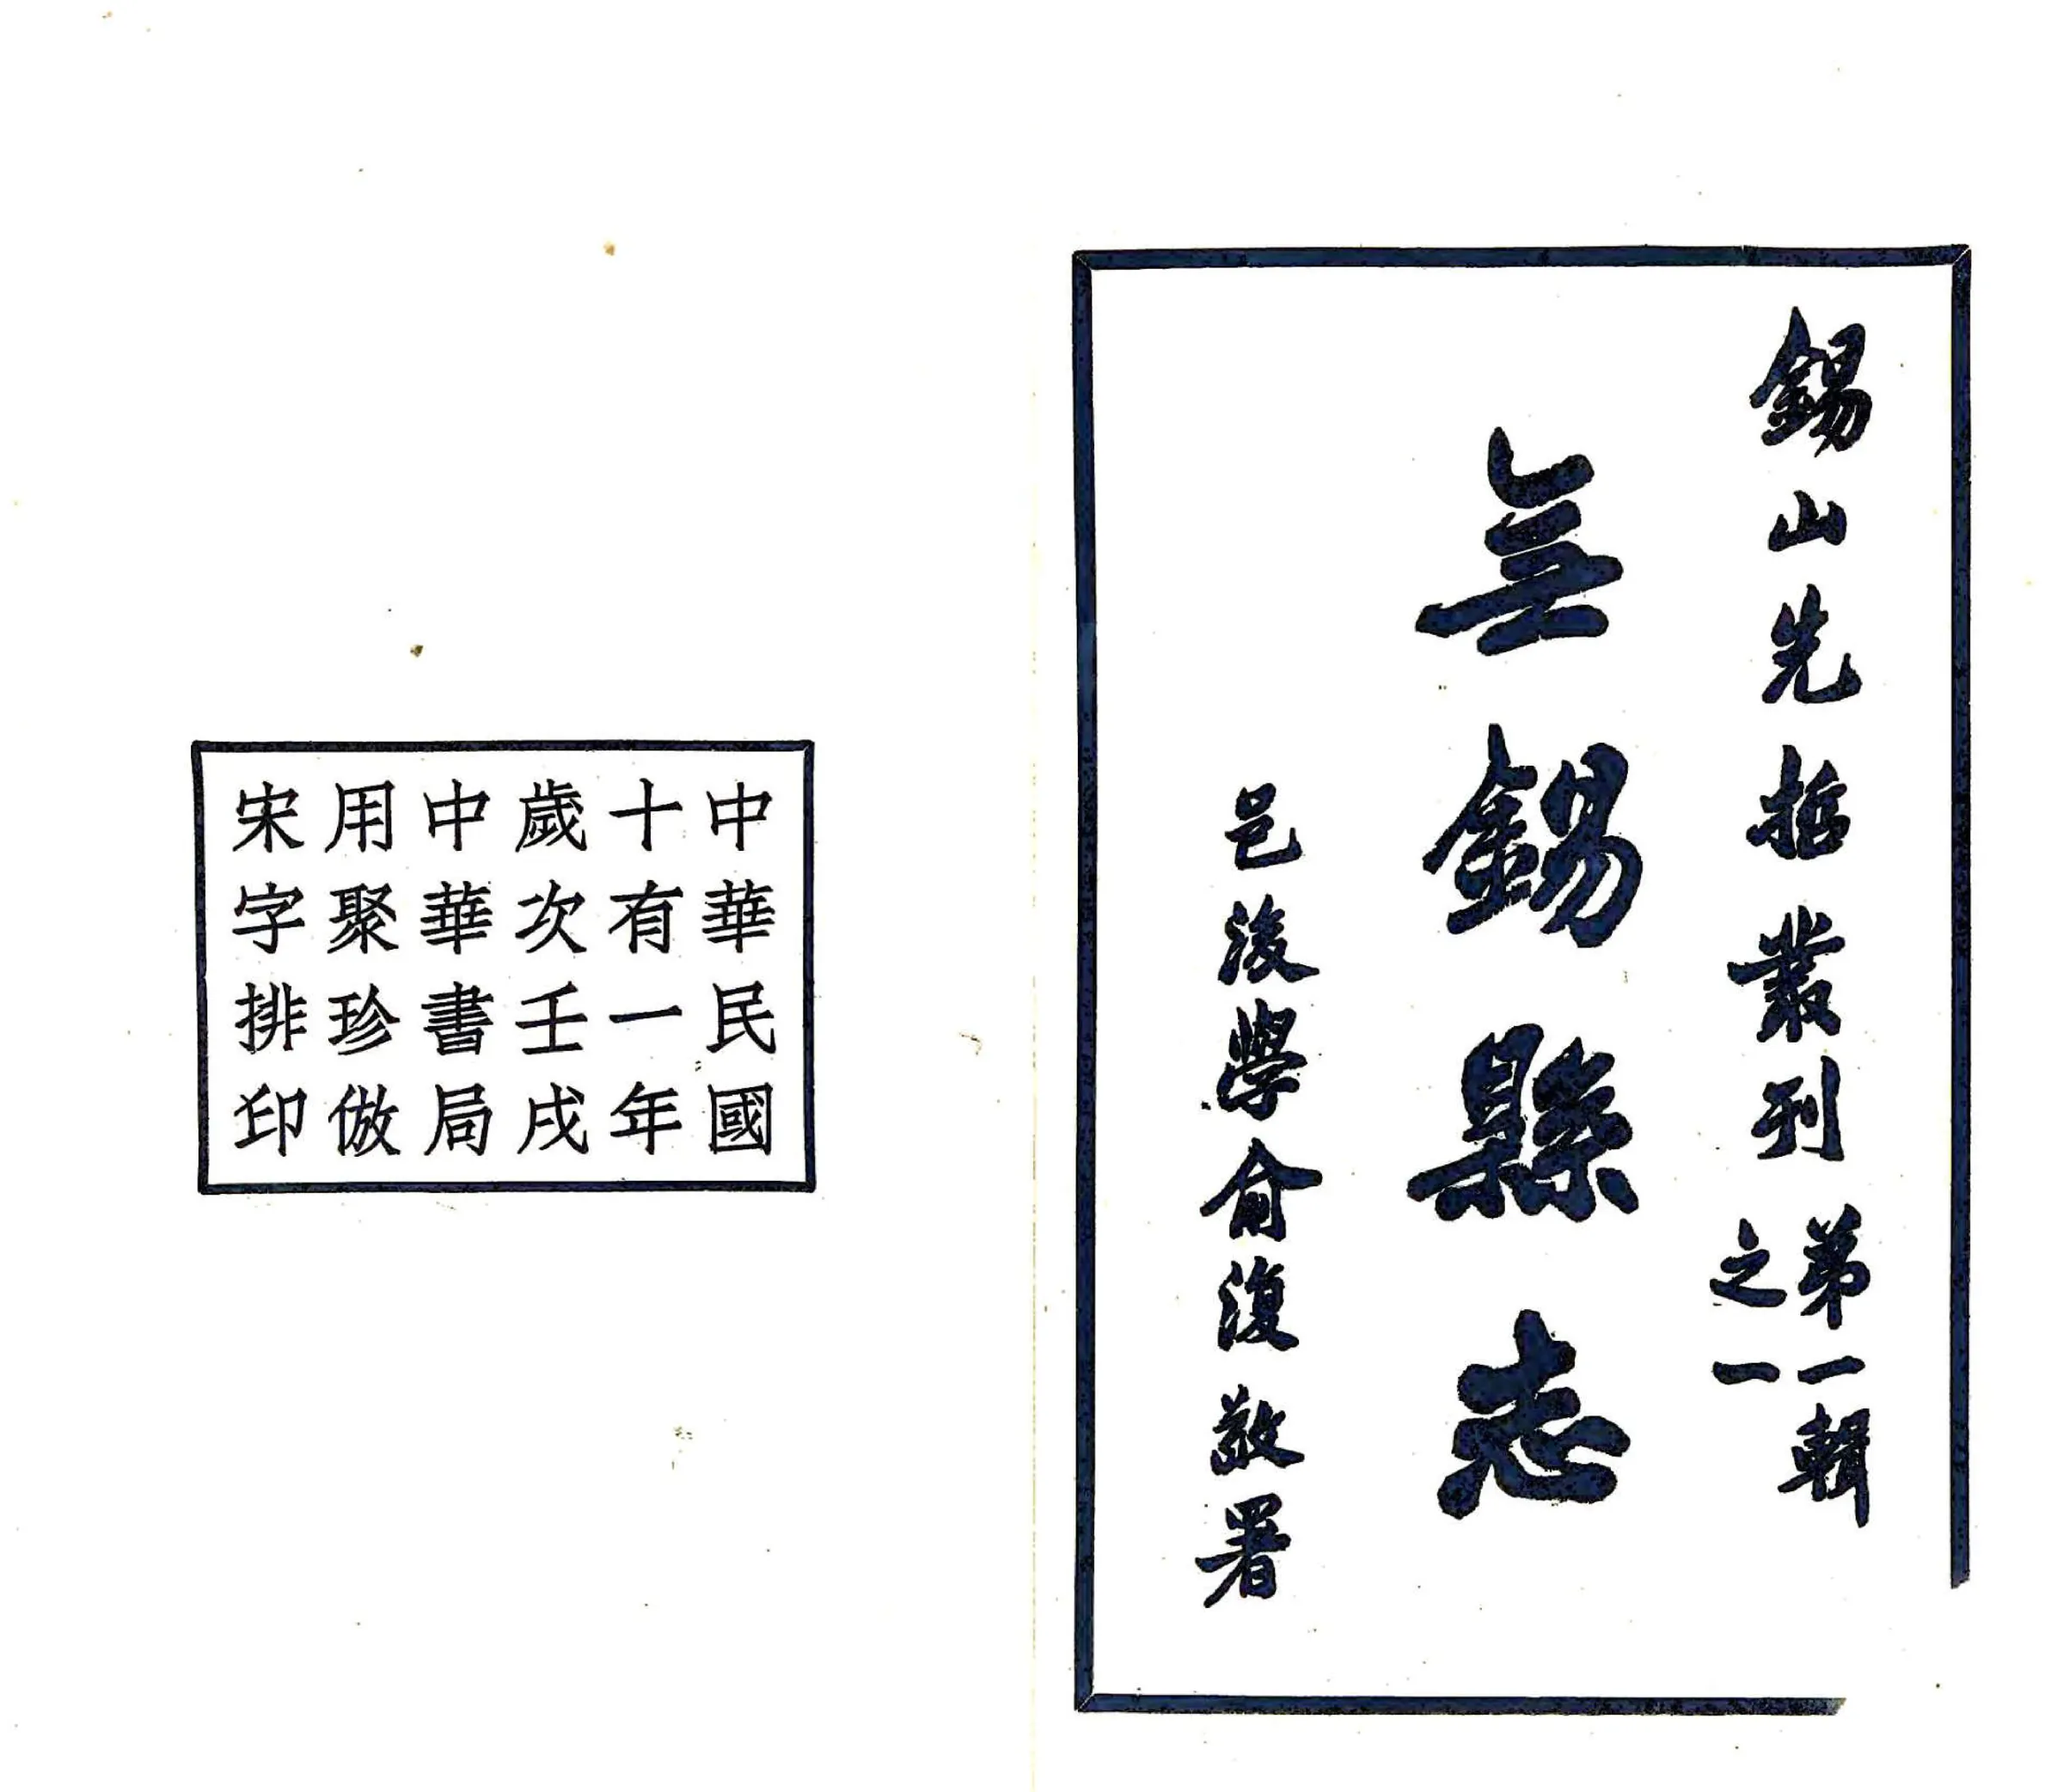 錫山先哲叢刊
第一輯
之一
無錫縣志
邑後學俞復敬署
中華民國
十有一年
歲次壬戌
中華書局
用聚珍倣
宋字排印